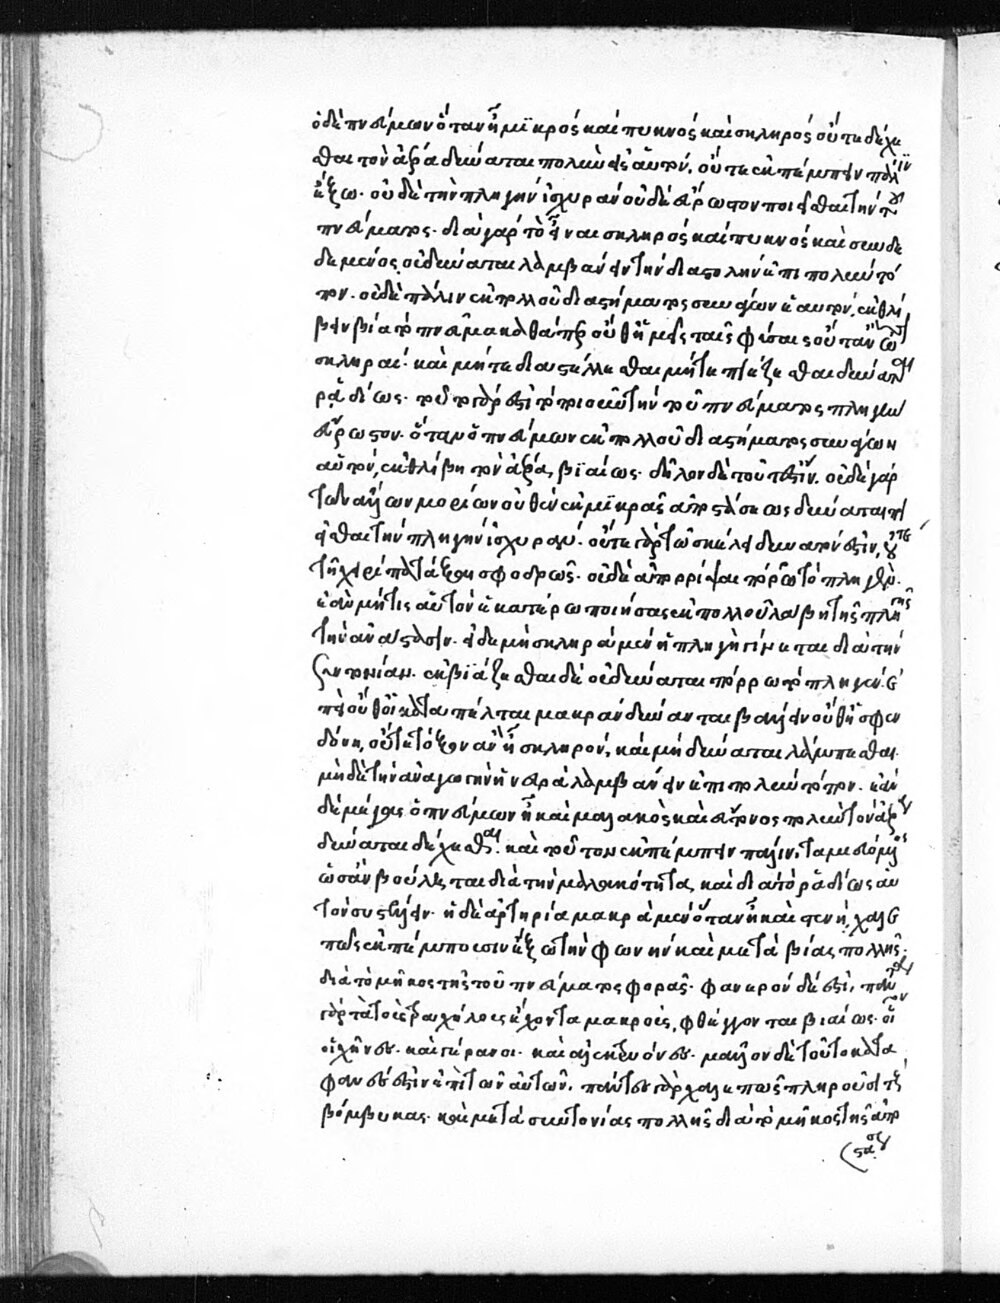 ὁ δὲ πνεύμων ὅταν ᾖ μικρὸς καὶ πυκνὸς καὶ σκληρὸς οὔτε δέχε
σθαι τὸν ἀέρα δύναται πολὺν εἰς αὑτόν, οὔτε ἐκπέμπειν πάλιν
ἔξω. οὐδὲ τὴν πληγὴν ἰσχυρὰν οὐδὲ εὔρωστον ποιεῖσθαι τὴν τοῦ
πνεύματος. διὰ γὰρ τὸ εἶναι σκληρὸς καὶ πυκνὸς καὶ συνδε
δεμένος οὐ δύναται λαμβάνειν τὴν διαστολὴν ἐπὶ πολὺν τό
πον. οὐδὲ πάλιν ἐκ πολλοῦ διαστήματος συνάγων ἑαυτόν, ἐκθλί
βειν βίᾳ τὸ πνεῦμα καθάπερ οὐθ' ἡμεῖς ταῖς φύσαις ὅταν ὦσι
σκληραί. καὶ μήτε διαστέλλεσθαι μήτε πιέζεσθαι δύνανται
ῥᾳδίως. τοῦτο γάρ ἐστι τὸ ποιοῦν τὴν τοῦ πνεύματος πληγὴν
εὔρωστον. ὅταν ὁ πνεύμων ἐκ πολλοῦ διαστήματος συνάγων
αὑτόν, ἐκθλίβῃ τὸν ἀέρα βιαίως. δῆλον δὲ τοῦτό ἐστιν. οὐδὲ γὰρ
τῶν ἄλλων μορίων οὐθὲν ἐκ μικρᾶς ἀποστάσεως δύναται ποι
εῖσθαι τὴν πληγὴν ἰσχυράν. οὔτε γὰρ τῷ σκέλει δυνατόν ἐστιν, οὔτε
τῇ χειρὶ πατάξαι σφοδρῶς. οὐδὲ ἀπορρίψαι πόρρω τὸ πληγέν.
ἐὰν μή τις αὐτῶν ἑκατέρῳ ποιήσας ἐκ πολλοῦ λάβῃ τῆς πληγῆς
τὴν ἀνάστασιν. εἰ δὲ μή σκληρὰ μὲν ἡ πληγὴ γίνεται διὰ τὴν
συντονίαν. ἐκβιάζεσθαι δὲ οὐ δύναται πόρρω τὸ πληγέν.
ἐπεὶ οὔθ' οἱ καταπέλται μακρὰν δύνανται βάλλειν οὔθ' ἡ σφεν
δόνη, οὔτε τόξον ἂν ᾖ σκληρόν, καὶ μὴ δύναται κάμπτεσθαι.
μηδὲ τὴν ἀναγωγὴν ἡ νευρὰ λαμβάνειν ἐπὶ πολὺν τόπον. ἐὰν
δὲ μέγας ὁ πνεύμων ᾖ καὶ μαλακὸς καὶ εὔτονος πολὺν τὸν ἀέρα
δύναται δέχεσθαι. καὶ τοῦτον ἐκπέμπειν πάλιν, ταμιευόμενος
ὡς ἂν βούληται διὰ τὴν μαλακότητα, καὶ διὰ τὸ ῥᾳδίως αὑ
τὸν συστέλλειν. ἡ δὲ ἀρτηρία μακρὰ μὲν ὅταν ᾖ καὶ στενή, χαλε
πῶς ἐκπέμπουσιν ἔξω τὴν φωνὴν καὶ μετὰ βίας πολλῆς.
διὰ τὸ μῆκος τῆς τοῦ πνεύματος φορᾶς. φανερὸν δέ ἐστι. πάντα
γὰρ τὰ τοὺς τραχήλους ἔχοντα μακρούς, φθέγγονται βιαίως. οἷον
οἱ χῆνες. καὶ γέρανοι. καὶ ἀλεκτρυόνες. μᾶλλον δὲ τοῦτο κατα
φανές ἐστιν ἐπὶ τῶν αὐλῶν. πάντες γὰρ χαλεπῶς πληροῦσι τοὺς
βόμβυκας. καὶ μετὰ συντονίας πολλῆς διὰ τὸ μῆκος τῆς ἀπο
στάσεως